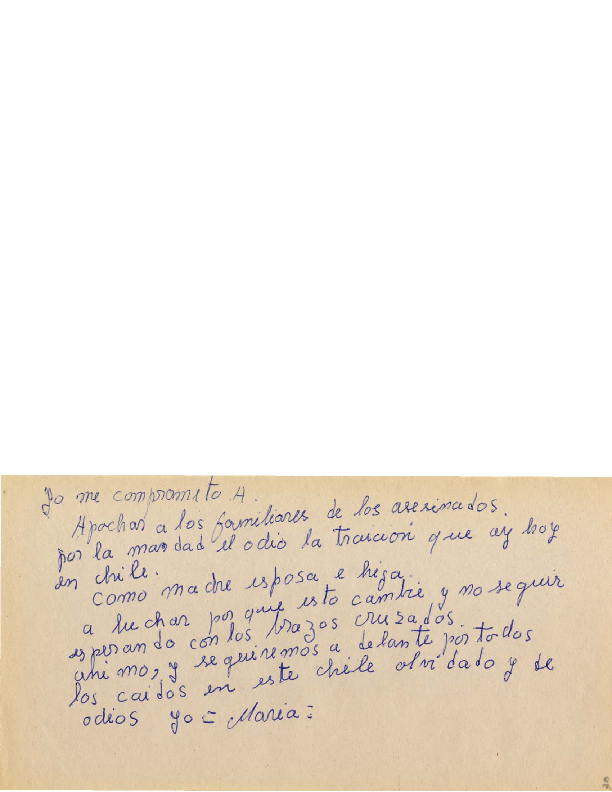 Yo me compromito A.
Apochar a los familiares de los asesinados.
por la maldad el odio la traición que ay hoy
en chile.
como madre esposa e hija.
a luchar por que esto cambie y no seguir
esperando con los brazos cruzados.
animo, y seguiremos a delante por todos
los caidos en este chile olvidado y de
odios yo = Maria =